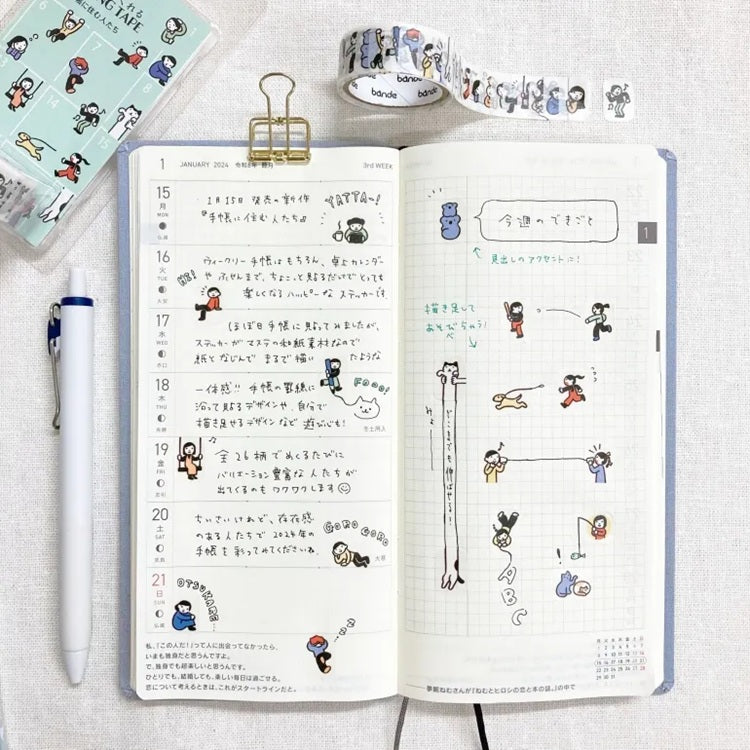 くれる
NG TAPE
帳に住む人たち
6
7
8
14
15
bande
bande
1 JANUARY 2024 令和6年 睦月 3rd WEEK
15
月
MON
仏滅
1月15日 発売の新作
『手帳に住む人たち』
YATTA~!
16
火
TUE
大安
ウィークリー手帳はもちろん、卓上カレンダー
や ふせんまで、ちょこっと貼るだけでとっても
楽しくなるハッピーな ステッカーです。
HE!
17
水
WED
赤口
ほぼ日手帳に貼ってみましたが、
ステッカーがマステの和紙素材なので
紙となじんで まるで描い たような
18
木
THU
先勝
一体感!! 手帳の罫線に
沿って貼るデザインや、自分で
描き足せるデザインなど 遊び心も!
FOOD!
冬土用入
19
金
FRI
友引
全26柄で めくるたびに
バリエーション豊富な 人たちが
出てくるのもワクワクします
20
土
SAT
先負
ちいさいけれど、存在感
のある人たちで 2024年の
手帳を彩ってみてくださいね。
GORO GORO
大寒
21
日
SUN
仏滅
OTSUKARE...
zzz
私、「この人だ!」って人に出会ってなかったら、
いまも独身だと思うんですよ。
で、独身でも超楽しいと思うんです。
ひとりでも、結婚しても、楽しい毎日は過ごせる。
恋について考えるときは、これがスタートラインだと。
今週のできごと
1
見出しのアクセントに!
描き足して
あそびちゃう!
どこまでも伸ばせる!
A
B
C
!
月 火 水 木 金 土 日
1 2 3 4 5 6 7
8 9 10 11 12 13 14
15 16 17 18 19 20 21
22 23 24 25 26 27 28
29 30 31